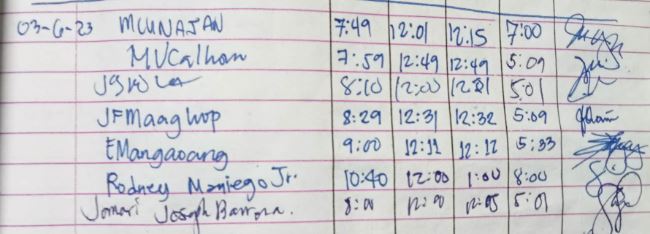 03-6-23 MCUNAJAN 7:49 12:01 12:15 7:00
MVCalhan 7:59 12:49 12:49 5:09
8:10 12:00 12:01 5:01
JFMaaghop 8:29 12:31 12:32 5:09
EMangaoang 9:00 12:11 12:12 5:33
Rodney Maniego Jr. 10:40 12:00 1:00 8:00
Jomari Joseph Barrora. 8:00 12:00 12:05 5:01